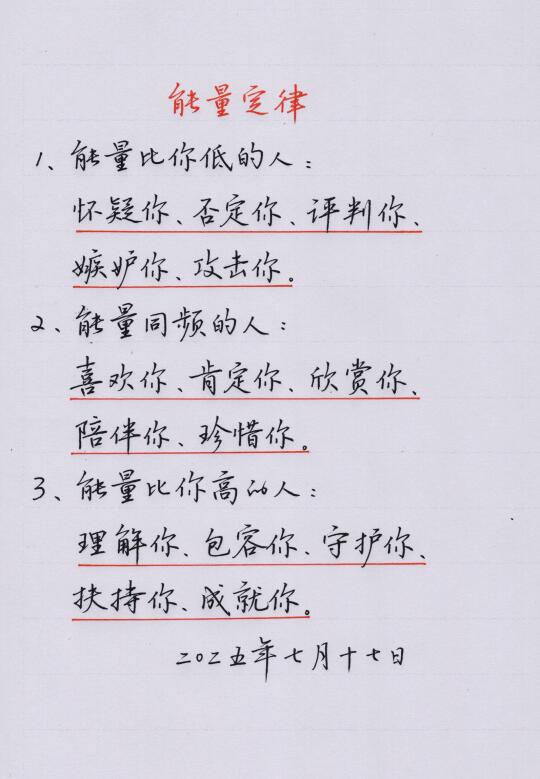 能量定律
1、能量比你低的人：
怀疑你、否定你、评判你、
嫉妒你、攻击你。
2、能量同频的人：
喜欢你、肯定你、欣赏你、
陪伴你、珍惜你。
3、能量比你高的人：
理解你、包容你、守护你、
扶持你、成就你。
二〇二五年七月十七日